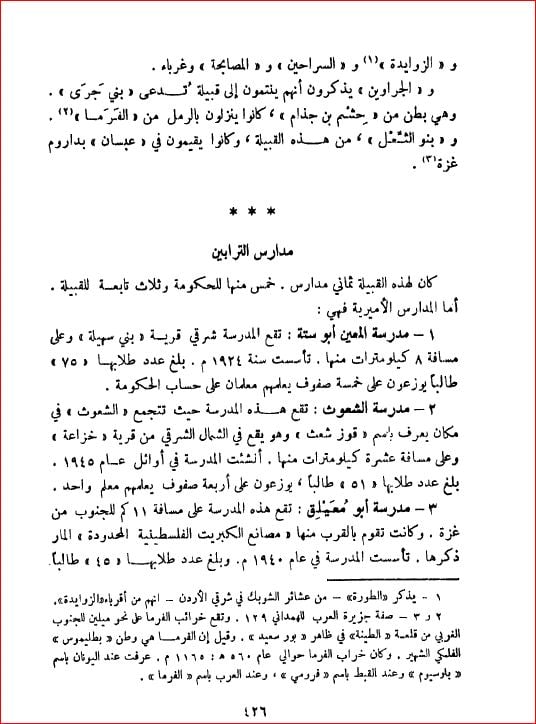 و « الزوايدة »(١) و « السراحين » و « المصابحة » وغرباء .
و « الجراوين » يذكرون أنهم ينتمون إلى قبيلة تُدعى « بني جَرَى » .
وهي بطن من « حِشْم بن جذام » ، كانوا ينزلون بالرمل من « الفَرَما »(٢) .
و « بنو الثَّعْل » ، من هذه القبيلة ، وكانوا يقيمون في « عبسان » بداروم
غزة(٣) .
* * *
مدارس الترابين
كان لهذه القبيلة ثماني مدارس . خمس منها للحكومة وثلاث تابعة للقبيلة .
أما المدارس الأميرية فهي :
١ – مدرسة المعين أبو ستة : تقع المدرسة شرقي قرية « بني سهيلة » وعلى
مسافة ٨ كيلومترات منها . تأسست سنة ١٩٢٤ م . بلغ عدد طلابها « ٧٥ »
طالباً يوزعون على خمسة صفوف يعلمهم معلمان على حساب الحكومة .
٢ – مدرسة الشعوث : تقع هذه المدرسة حيث تتجمع « الشعوث » في
مكان يعرف باسم « قوز شعث » وهو يقع في الشمال الشرقي من قرية « خزاعة »
وعلى مسافة عشرة كيلومترات منها . أنشئت المدرسة في أوائل عام ١٩٤٥ .
بلغ عدد طلابها « ٥١ » طالباً ، يوزعون على أربعة صفوف يعلمهم معلم واحد .
٣ – مدرسة أبو مُعَيْلِق : تقع هذه المدرسة على مسافة ١١ كم للجنوب من
غزة . وكانت تقوم بالقرب منها « مصانع الكبريت الفلسطينية المحدودة » المار
ذكرها . تأسست المدرسة في عام ١٩٤٠ م . وبلغ عدد طلابها « ٤٥ » طالباً.
١ - يذكر «الطورة» – من عشائر الشوبك في شرقي الأردن – انهم من أقرباء «الزوايدة».
٢ و ٣ – صفة جزيرة العرب للهمداني ١٢٩ . وتقع خرائب الفرما على نحو ميلين للجنوب
الغربي من قلعة « الطينة » في ظاهر « بور سعيد » . وقيل إن الفرما هي وطن « بطليموس »
الفلكي الشهير . وكان خراب الفرما حوالي عام ٥٦٠ هـ : ١١٦٥ م . عرفت عند اليونان باسم
« بلوسيوم » وعند القبط باسم « فرومي » ، وعند العرب باسم « الفرما » .
٤٢٦